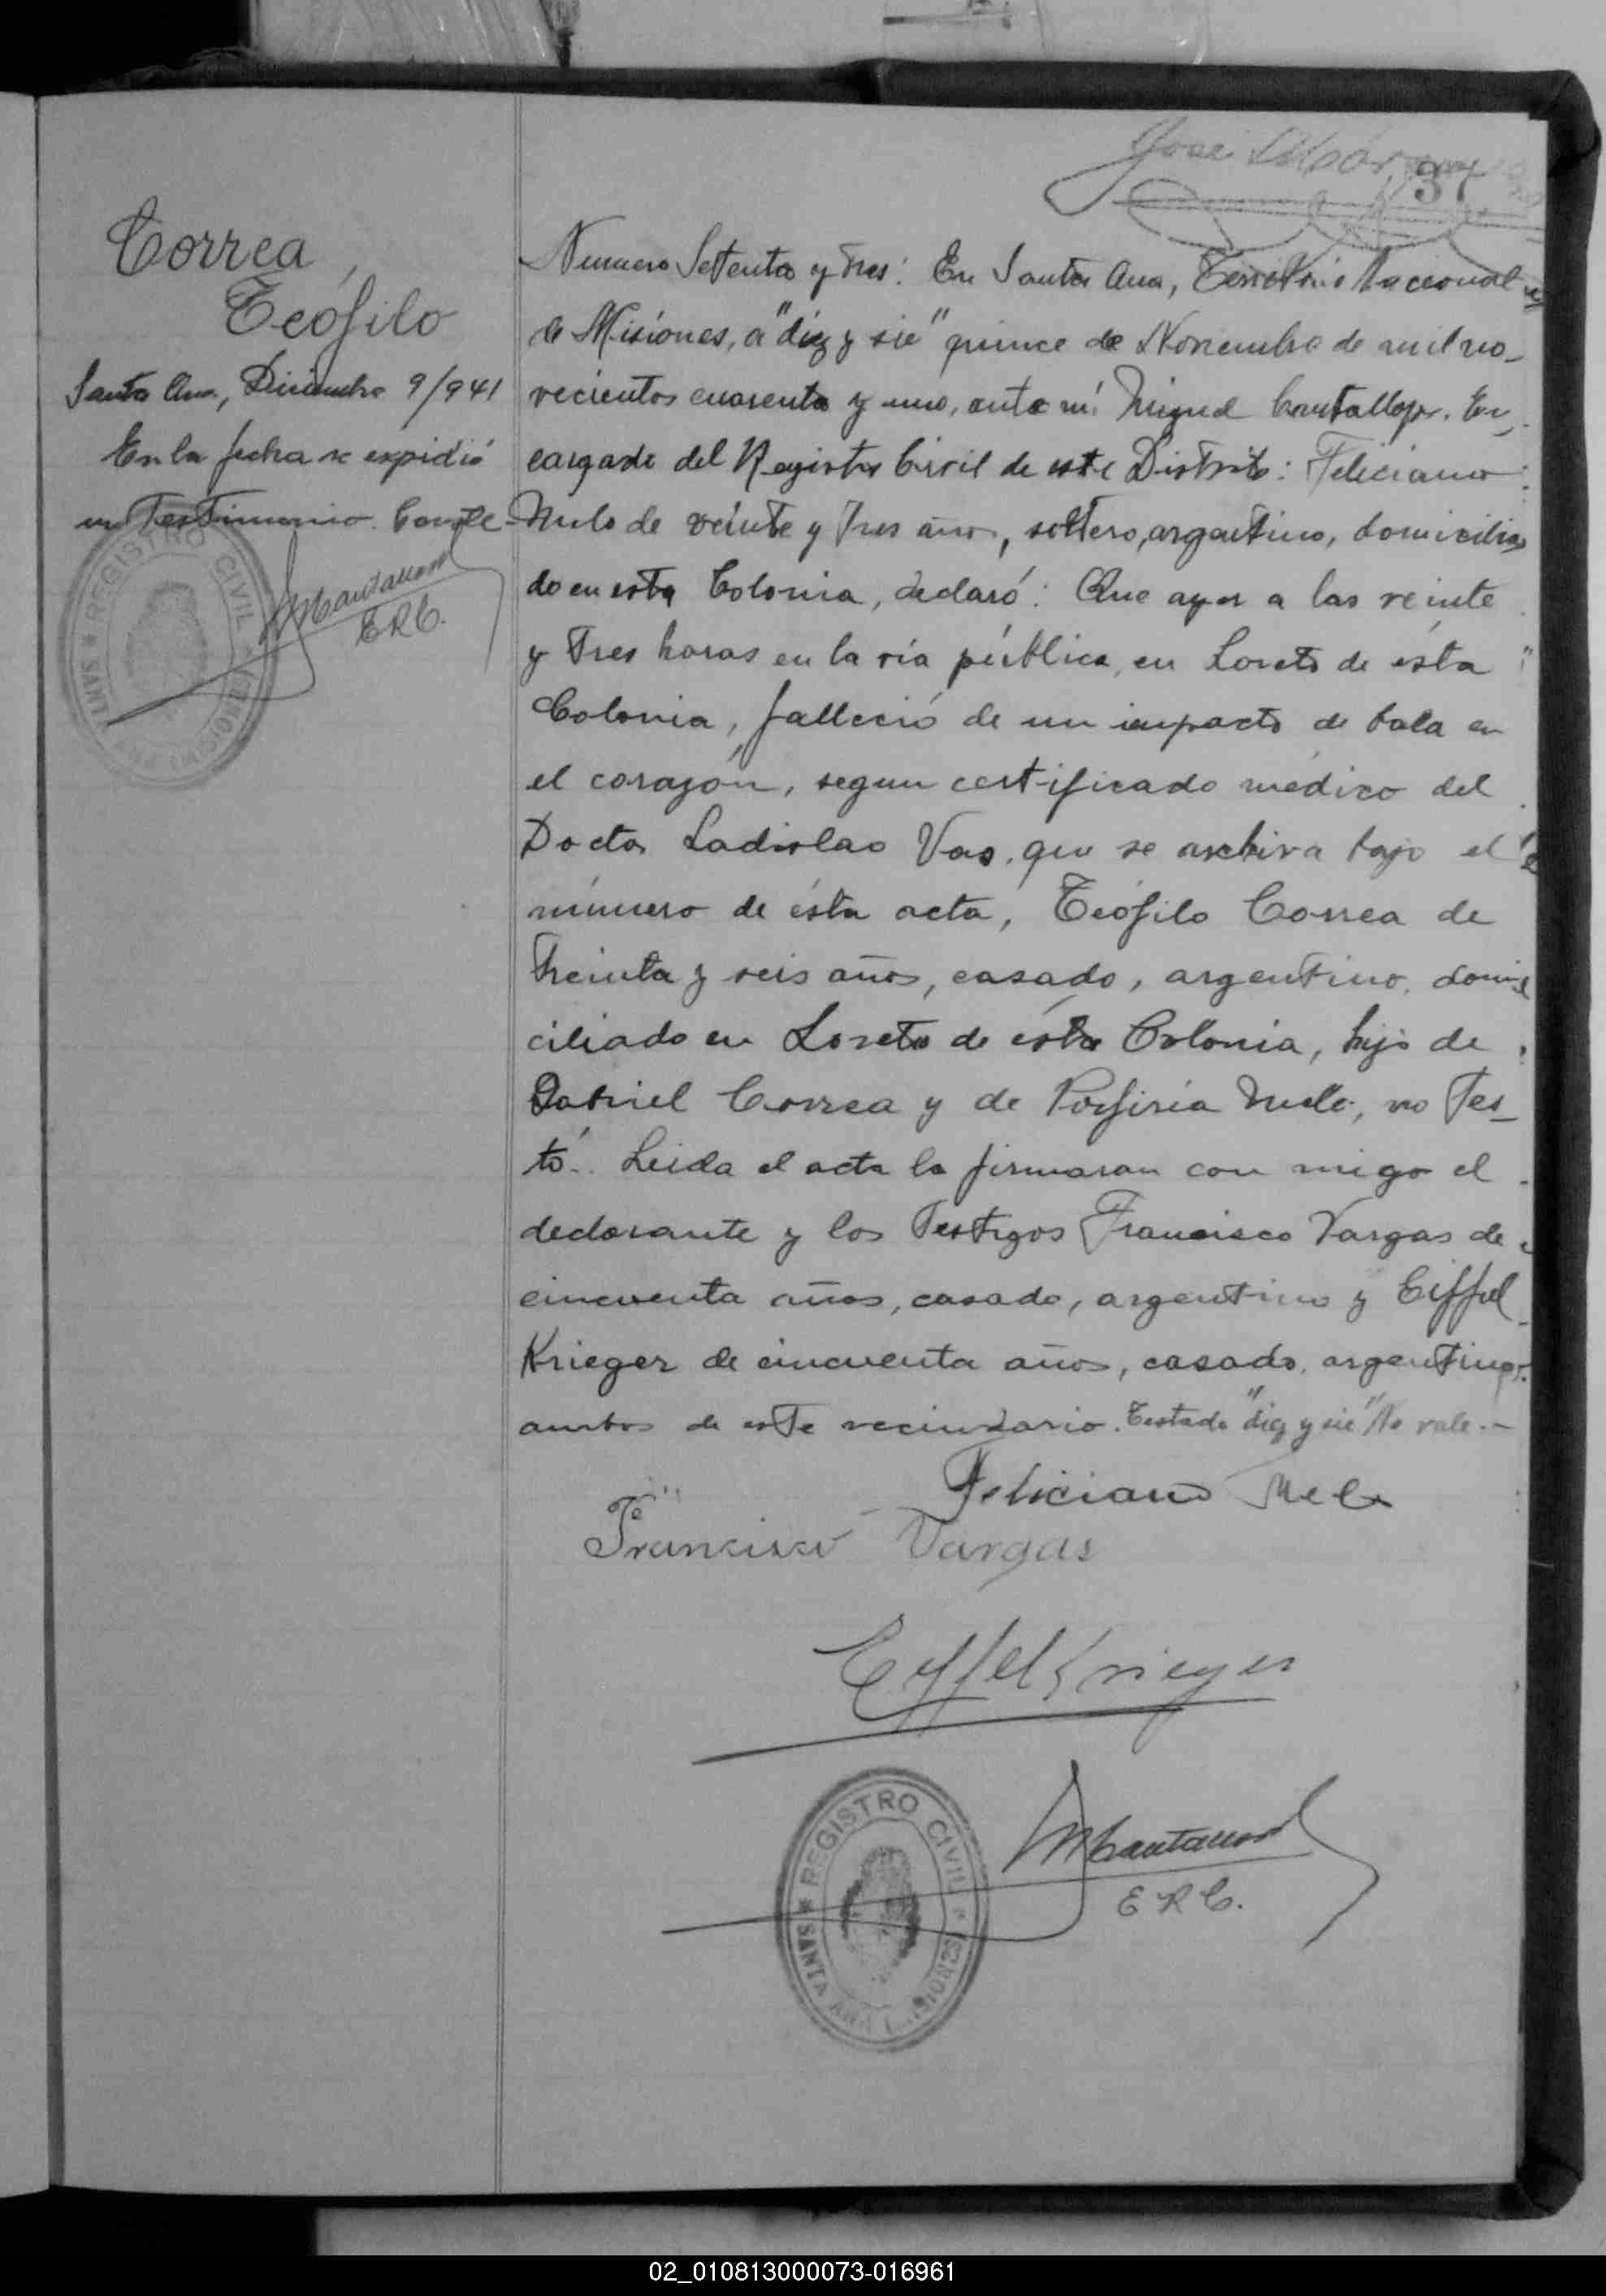 37
Correa
Teófilo
Santa Ana, Diciembre 9/941
En la fecha se expidió
un Testimonio. Conste
REGISTRO CIVIL
SANTA
E R C.
Numero Setenta y tres: En Santa Ana, Territorio Nacional
de Misiones, a "diez y sie" quince de Noviembre de mil no-
vecientos cuarenta y uno, ante mí Miguel Cantallops. En-
cargado del Registro Civil de este Distrito: Feliciano
Melo de veinte y tres años, soltero, argentino, domicilia
do en esta Colonia, declaró: Que ayer a las veinte
y tres horas en la vía pública, en Loreto de ésta
Colonia, falleció de un impacto de bala en
el corazón, segun certificado médico del
Doctor Ladislao Vas, que se archiva bajo el
número de ésta acta, Teófilo Correa de
treinta y seis años, casado, argentino, domi
ciliado en Loreto de ésta Colonia, hijo de
Gabriel Correa y de Porfiria Mello, no tes-
tó. Leida el acta la firmaron con migo el
declarante y los testigos Francisco Vargas de
cincuenta años, casado, argentino y Eiffel
Krieger de cincuenta años, casado, argentino,
ambos de este vecindario. Testado "diez y sie" No vale.-
Feliciano Melo
Francisco Vargas
Eiffel Krieger
REGISTRO CIVIL
SANTA ANA (MISIONES)
MCantallops
E R C.
02_010813000073-016961